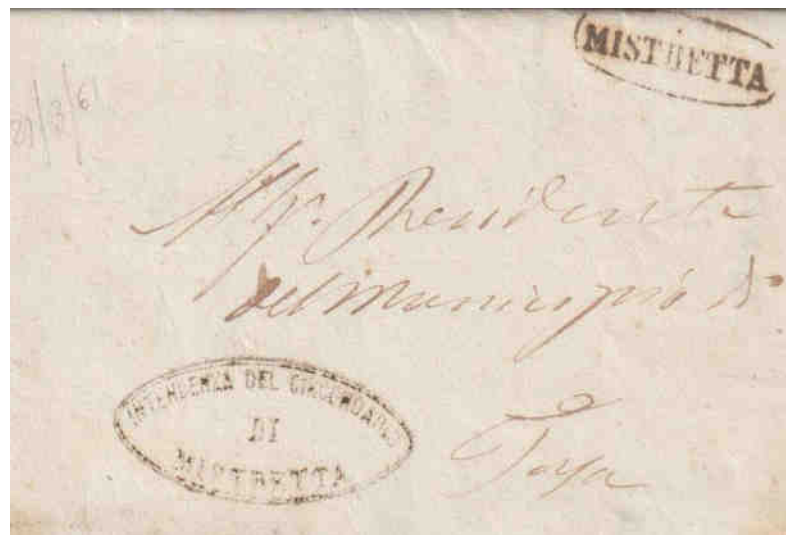 MISTRETTA
Al Sr. Presidente
del Municipio di
Tusa
INTENDENZA DEL CIRCONDARIO
DI
MISTRETTA